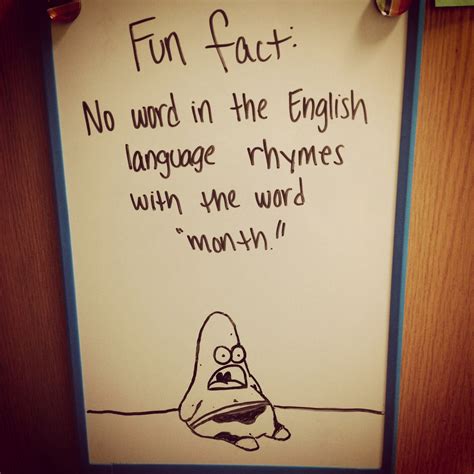 Fun fact:
No word in the English
language rhymes
with the word
"month."